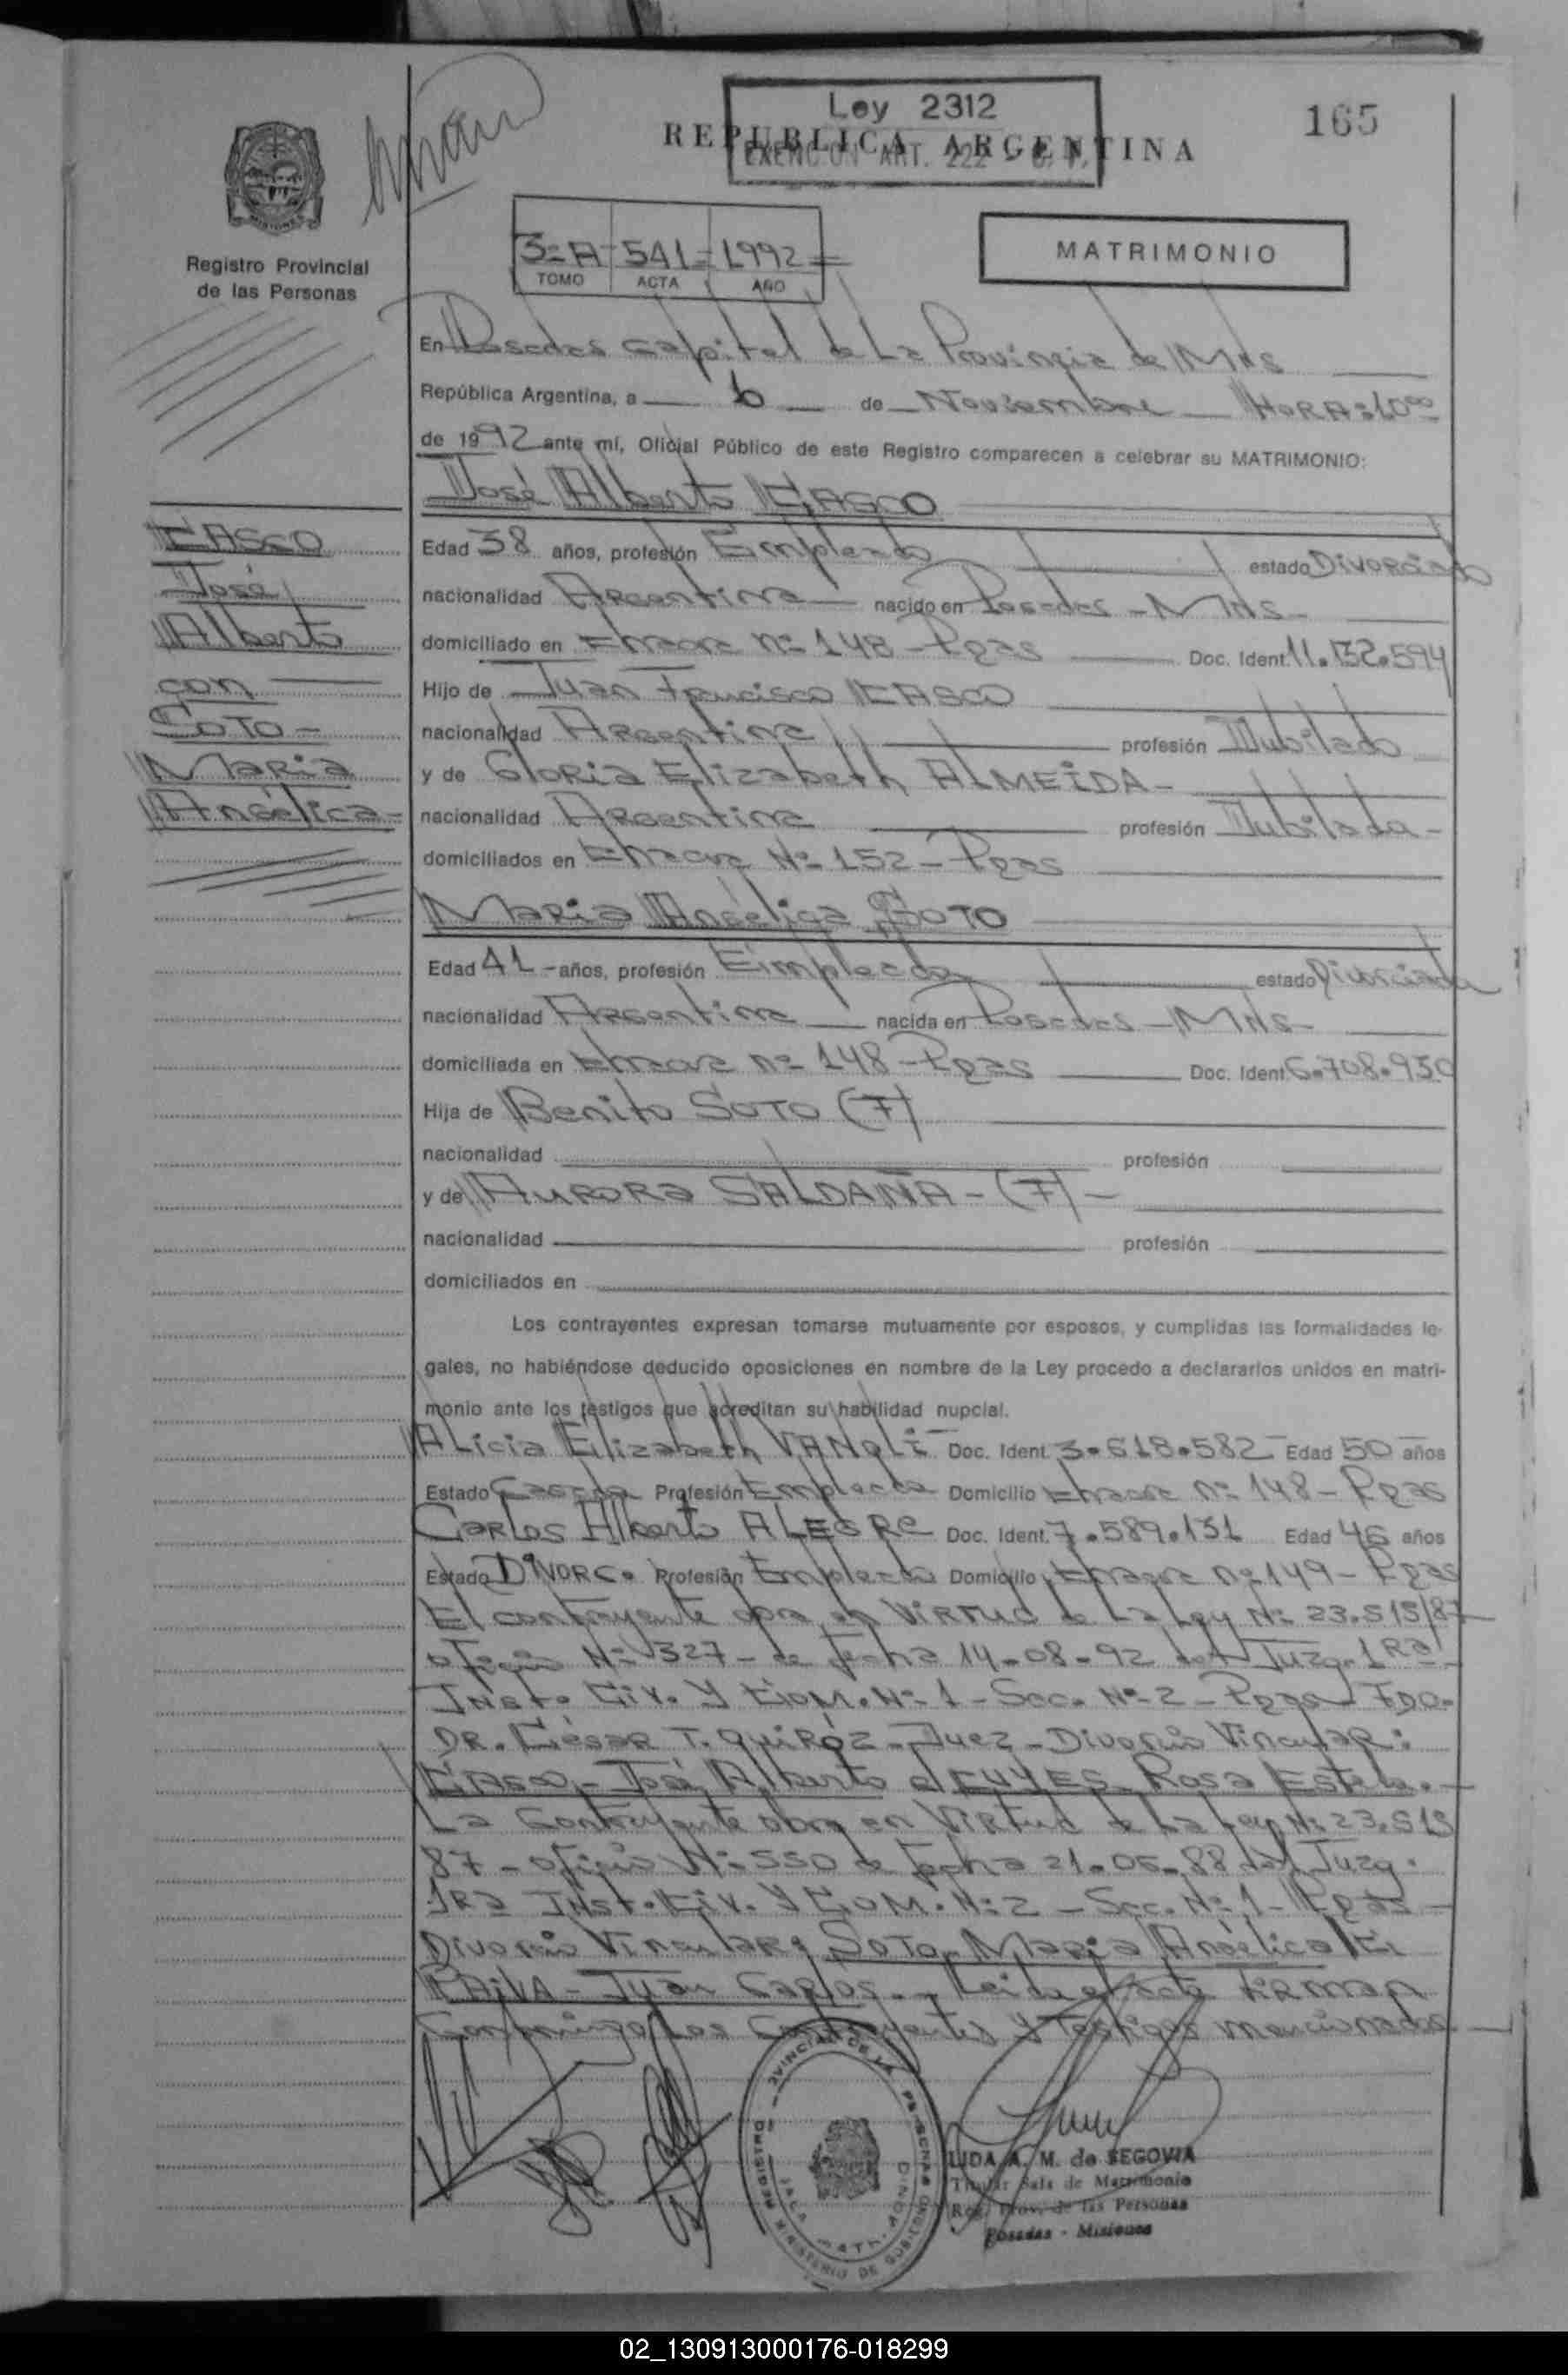 Ley 2312
REPUBLICA ARGENTINA
EXENCION ART. 222
165
3=A 541= 1992
TOMO ACTA AÑO
MATRIMONIO
Registro Provincial
de las Personas
En Posadas Capital de La Provincia de Mns
República Argentina, a 6 de Noviembre HORA:10⁰⁰
de 1992 ante mí, Oficial Público de este Registro comparecen a celebrar su MATRIMONIO:
José Alberto CASCO
CASCO
José
Alberto
con
SOTO-
María
Angélica-
Edad 38 años, profesión Empleado estado Divorciado
nacionalidad Argentina nacido en Posadas - Mns-
domiciliado en Nº 148 - Pdas Doc. Ident. 11.132.594
Hijo de Juan Francisco CASCO
nacionalidad Argentina profesión Jubilado
y de Gloria Elizabeth ALMEIDA-
nacionalidad Argentina profesión Jubilada-
domiciliados en Nº 152 - Pdas
María Angélica SOTO
Edad 41 - años, profesión Empleada estado Divorciada
nacionalidad Argentina nacida en Posadas - Mns-
domiciliada en nº 148 - Pdas Doc. Ident. 6.708.930
Hija de Benito SOTO (F)
nacionalidad profesión
y de AURORA SALDAÑA - (F) -
nacionalidad profesión
domiciliados en
Los contrayentes expresan tomarse mutuamente por esposos, y cumplidas las formalidades le-
gales, no habiéndose deducido oposiciones en nombre de la Ley procedo a declararlos unidos en matri-
monio ante los testigos que acreditan su habilidad nupcial.
Alicia Elizabeth Doc. Ident. 3.618.582 Edad 50 años
Estado Casada Profesión Empleada Domicilio nº 148 - Pdas
Carlos Alberto ALEGRE Doc. Ident. 7.589.131 Edad 46 años
Estado DIVORC. Profesión Empleado Domicilio nº 149 - Pdas
El contrayente obra en virtud de La Ley Nº 23.515/87
oficio Nº 327 - de fecha 14-08-92 del Juzg. 1Ra
Inst. Civ. y Com. Nº 1 - Sec. Nº 2 - Pdas FDO.
DR. César T. Quiróz - Juez - Divorcio Vincular:
CASCO - José Alberto c/ Rosa Estela. -
La Contrayente obra en virtud de La Ley Nº 23.515
87 - oficio Nº 550 de fecha 21-06-88 del Juzg.
1Ra Inst. Civ. y COM. Nº 2 - Sec. Nº 1 - Pdas -
Divorcio Vincular: SOTO - María Angélica C/
PAIVA - Juan Carlos. - Leida el Acta firman
Conmigo Los Contrayentes y Testigos mencionados
LIDA A. M. de SEGOVIA
Titular Sala de Matrimonio
Reg. Prov. de las Personas
Posadas - Misiones
02_130913000176-018299